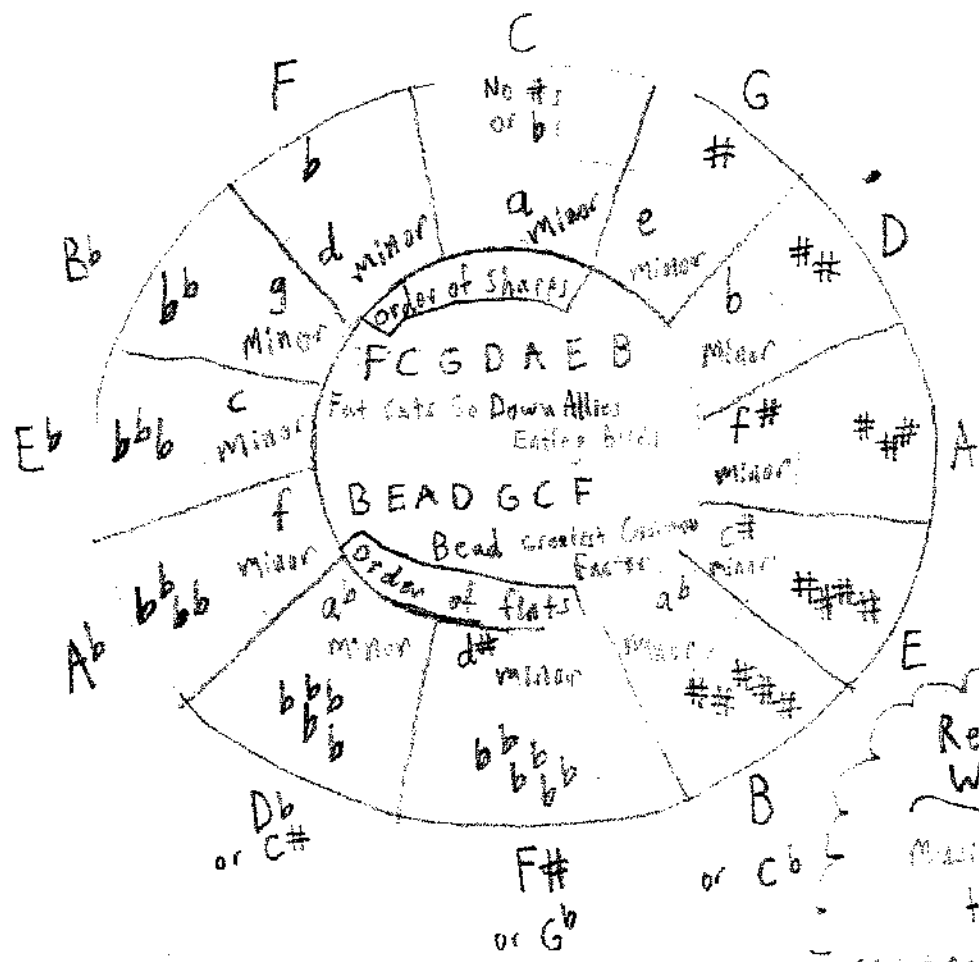 C
No #s
or bs
a
minor
G
#
e
minor
D
##
b
minor
A
###
f#
minor
E
####
c#
minor
B
or Cb
#####
ab
minor
F#
or Gb
bbbbbb
d#
minor
Db
or C#
bbbbb
ab
minor
Ab
bbbb
f
minor
Eb
bbb
c
minor
Bb
bb
g
minor
F
b
d
minor
order of sharps
F C G D A E B
Fat Cats Go Down Allies
Eating birds
B E A D G C F
Bead Greatest Common
order of flats